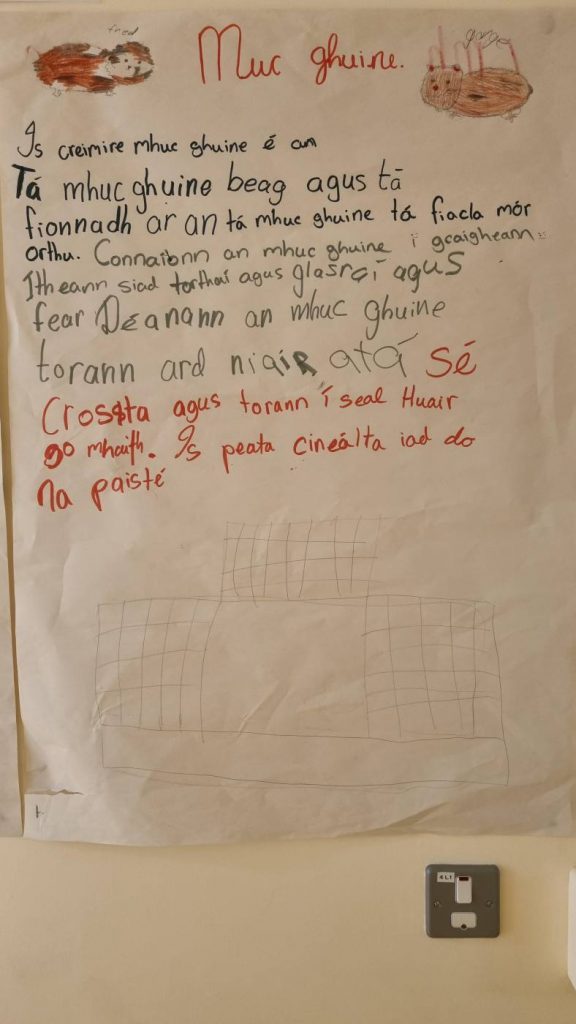 fred
Muc ghuine.
Is creimire mhuc ghuine é an
Tá mhuc ghuine beag agus tā
fionnadh ar an tá mhuc ghuine tá fiacla mór
orthu. Connaíonn an mhuc ghuine i gcaigheann.
Itheann siad torthaí agus glasraí agus
fear Déanann an mhuc ghuine
torann ard niair atá sé
Crossta agus torann í seal Huair
go mhaith. Is peata cineálta iad do
Na paisté
4L1